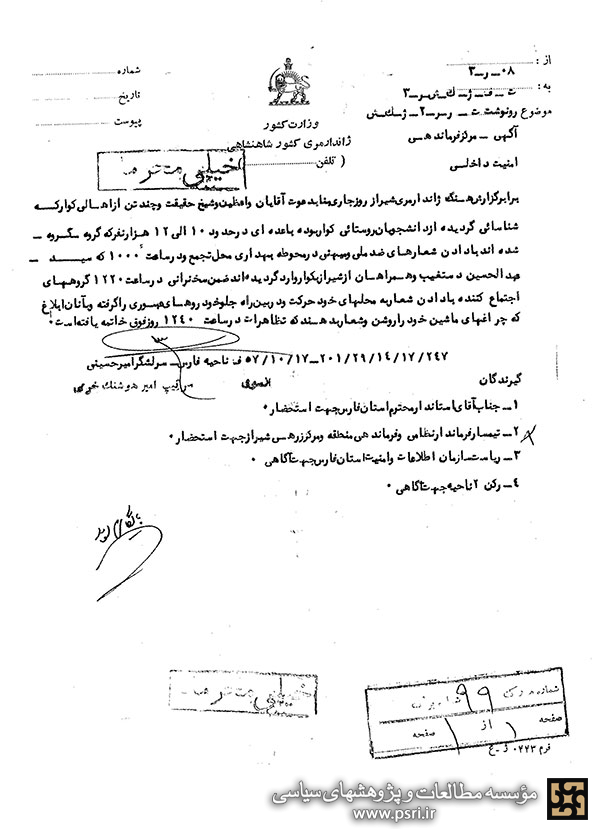 از :
۰۸ ـ ر ـ ۳
به :
ت ـ ف ـ ژ ـ ك ـ ش ـ ر ـ ۳
موضوع رونوشت ت ـ ر س ر ـ ۲ ـ ژ ـ ك ـ ش
آگهی ـ مرکز فرماندهی
امنیت داخلی
وزارت کشور
ژاندارمری کشور شاهنشاهی
( تلفن )
شماره
تاریخ
پیوست
خیلی محرمانه
برابر گزارش هنگ ژاندارمری شیراز روز جاری بنا بدعوت آقایان واعظین و شیخ حقیقت و چند تن از اهالی کوار که
شناسائی گردیده از دانشجویان روستائی کوار بوده با عده ای در حدود ۱۰ الی ۱۲ هزار نفر که گروه ـ گروه ـ
شده اند با دادن شعارهای ضد ملی و میهنی در محوطه بهداری محل تجمع و در ساعت ۱۰۰۰ که سید ـ
عبدالحسین دستغیب و همراهان از شیراز بکوار وارد گردیده اند ضمن سخنرانی در ساعت ۱۲۲۰ گروههای
اجتماع کننده با دادن شعار به محلهای خود حرکت و در بین راه جلو خودروهای عبوری را گرفته و بآنان ابلاغ
که چراغهای ماشین خود را روشن و شعار بدهند که تظاهرات در ساعت ۱۲۴۰ روز فوق خاتمه یافته است ۰
۲۰۱/۲۹/۱۴/۱۷/۲۴۷ ـ ۵۷/۱۰/۱۷ ف ناحیه فارس ـ سرلشگر امیرحسینی
گیرندگان
۱ ـ جناب آقای استاندار محترم استان فارس جهت استحضار ۰
۲ ـ تیمسار فرماندار نظامی و فرماندهی منطقه و مرکز زرهی شیراز جهت استحضار ۰
۳ ـ ریاست سازمان اطلاعات و امنیت استان فارس جهت آگاهی ۰
۴ ـ رکن ۲ ناحیه جهت آگاهی ۰
خیلی محرمانه
شماره مدرک ۹۹
صفحه ۱ از ۱ صفحه
فرم ۰۲۲۳ ژ ـ ج
مؤسسه مطالعات و پژوهشهای سیاسی
www.psri.ir